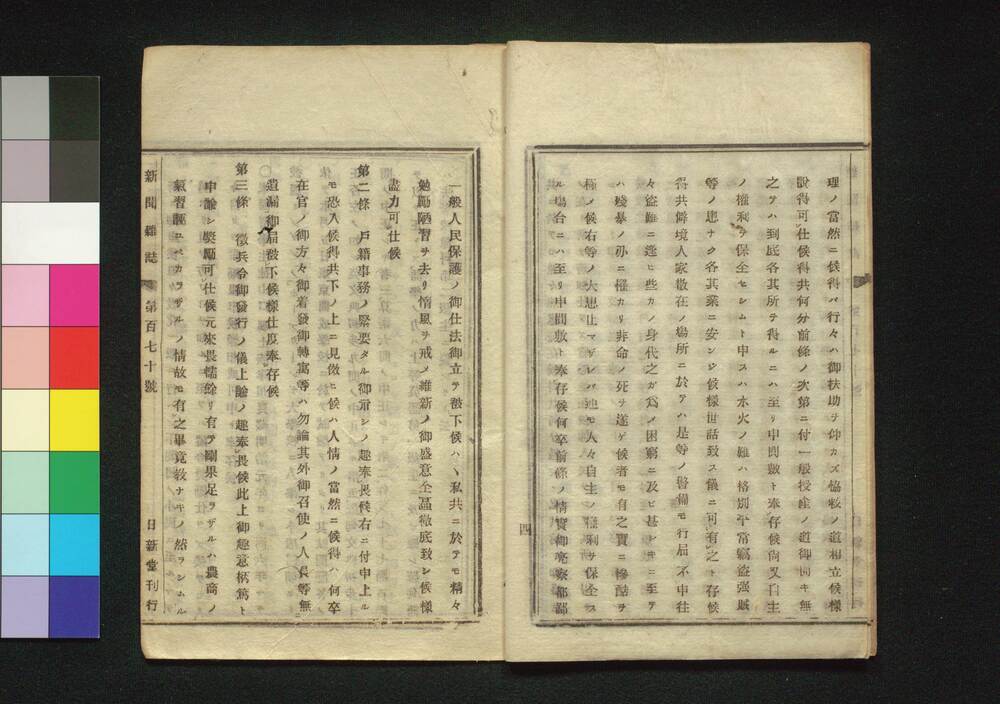 理ノ當然ニ候得バ行々ハ御扶助ヲ仰カズ協救ノ道相立候樣
說得可仕候得共何分前條ノ次第ニ付一般授產ノ道御開キ無
之テハ到底各其所ヲ得ルニハ至リ申間敷ト奉存候尙又自主
ノ權利ヲ保全セシムト申スハ水火ノ難ハ格別平常竊盜强賊
等ノ患ナク各其業ニ安ンジ候樣世話致ス儀ニ可有之ト存候
得共僻境人家散在ノ場所ニ於テハ是等ノ警備モ行屆不申往
々盜難ニ逢ヒ些カノ身代之ガ爲ノ困窮ニ及ビ甚シキニ至テ
ハ殘暴ノ刄ニ罹カリ非命ノ死ヲ遂ゲ候者モ有之實ニ慘酷ヲ
極ノ候右等ノ大患止マザレバ迚モ人々自主ノ權利ヲ保全ス
ル塲合ニハ至リ申間敷ト奉存候何卒前條ノ情實御亮察都鄙
四
一般人民保護ノ御仕法御立ヲ被下候ハヽ私共ニ於テモ精々
勉勵陋習ヲ去リ惰風ヲ戒メ維新ノ御盛意全區徹底致シ候樣
盡力可仕候
第二條 戶籍事務ノ緊要タル御示シノ趣奉畏候右ニ付申上ル
モ恐入候得共下ノ上ニ見傚ニ候ハ人情ノ當然ニ候得ハ何卒
在官ノ御方々御着發御轉寓等ハ勿論其外御召使ノ人員等無
遺漏御屆被下候樣仕度奉存候
第三條 徵兵令御發行ノ儀上諭ノ趣奉畏候此上御趣意柄篤ト
申諭シ奬勵可仕候元來畏懦餘リ有テ剛果足ラザルハ農商ノ
氣習輕ユベカラザルノ情故モ有之畢竟敎ナキノ然ラシムル
新聞雜誌 第百七十號 日新堂刊行